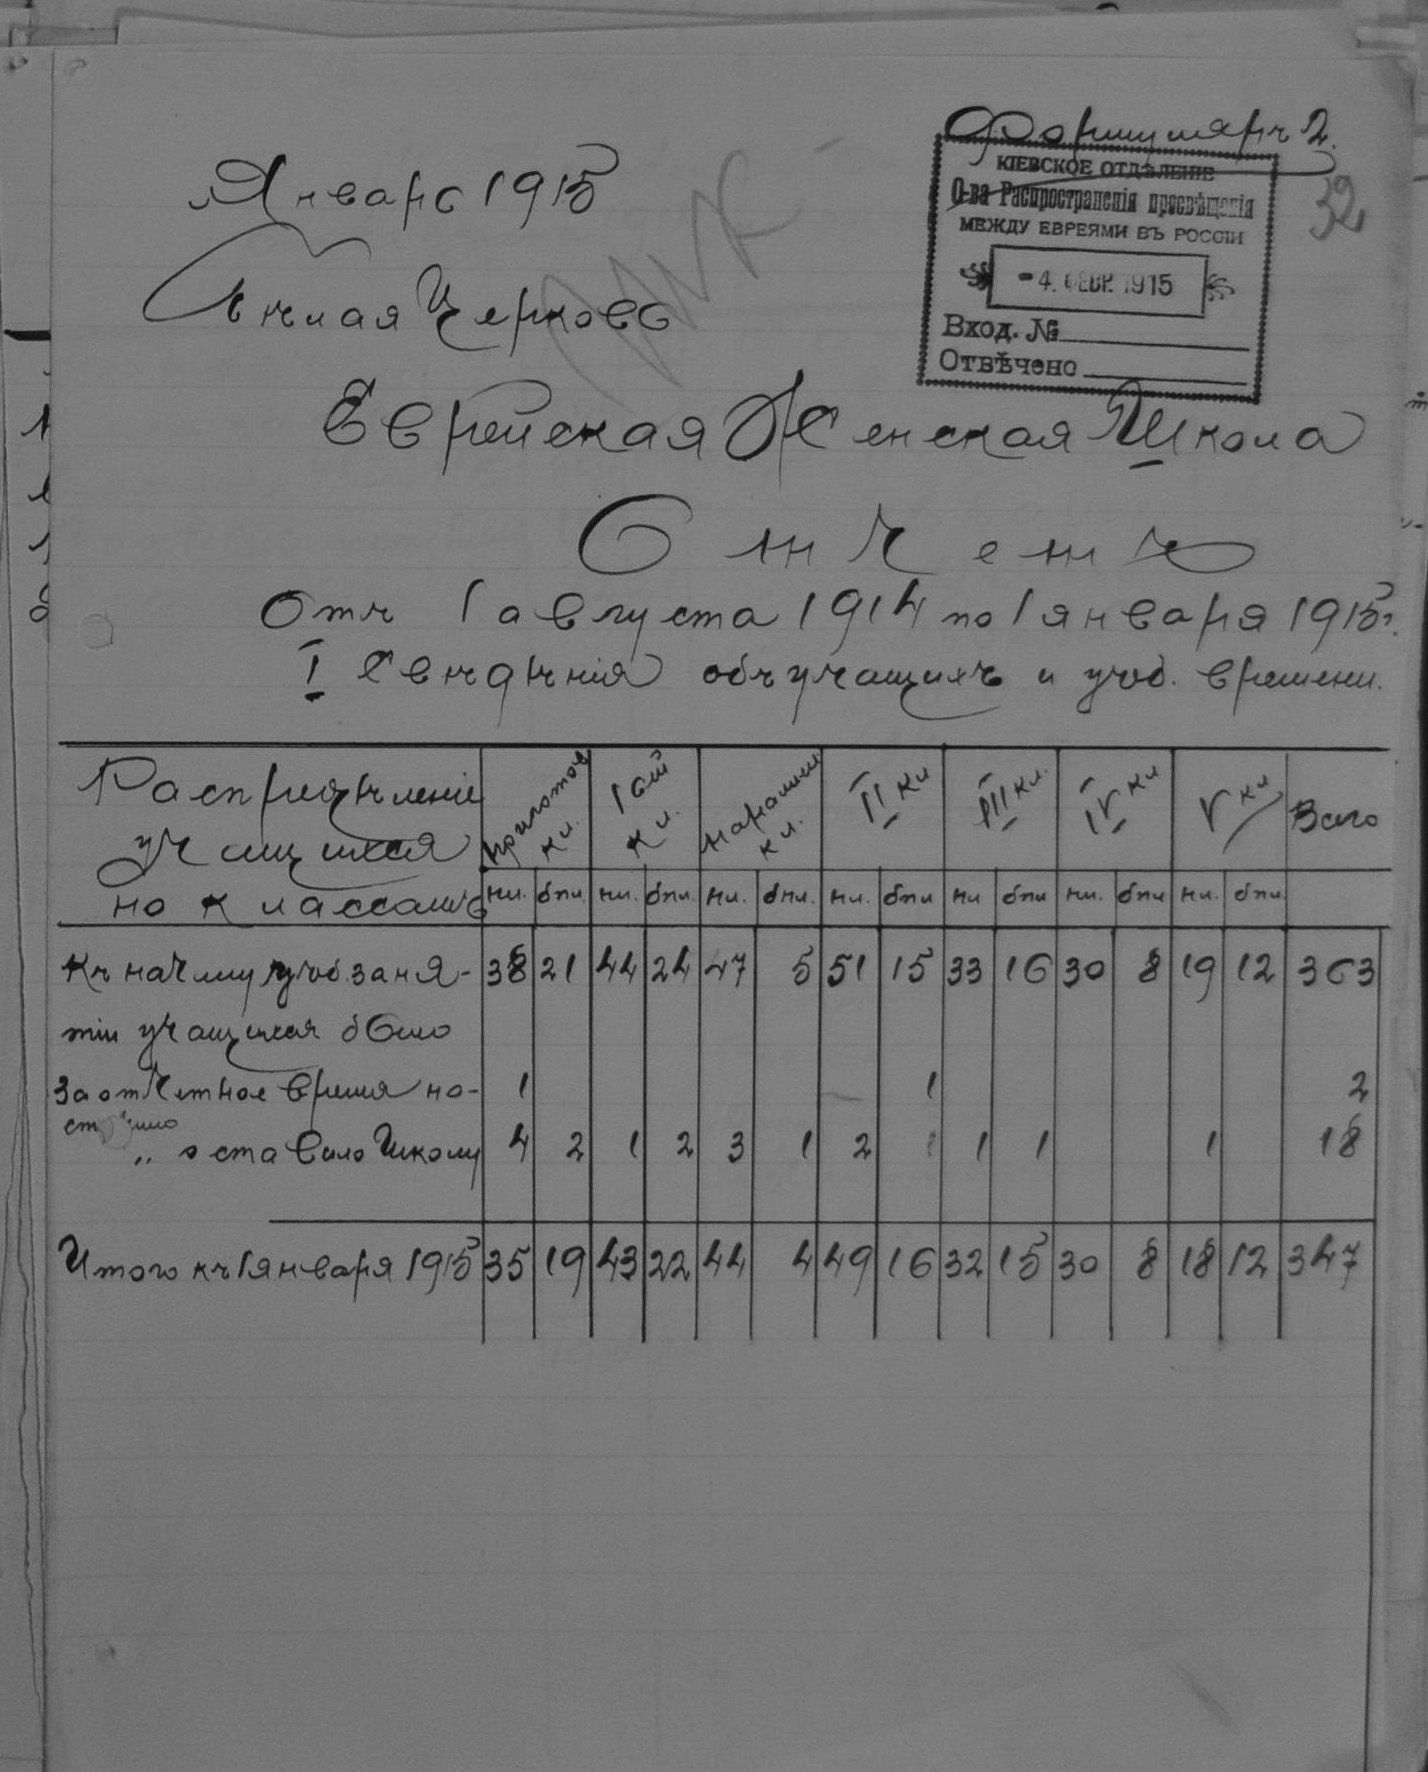 Формуляръ 2.
КІЕВСКОЕ ОТДѢЛЕНІЕ
О-ва Распространенія просвѣщенія
МЕЖДУ ЕВРЕЯМИ ВЪ РОССІИ
32
- 4. ФЕВР. 1915
Вход. №
Отвѣчено
Январь 1915
Бѣлая Церковь
Еврейская Женская Школа
Отчетъ
Отъ 1 августа 1914 по 1 января 1915 г.
I Свѣдѣнія объ учащихъ и учеб. времени.
Распредѣленіе учащихся по классамъ приготов кл. I ый кл. паралл кл. II кл III кл. IV кл V кл Всего
пл. бпл. пл. бпл. пл. бпл. пл. бпл пл бпл пл. бпл пл. бпл
Къ началу учеб. заня- 38 21 44 24 47 5 51 15 33 16 30 8 19 12 363
тій учащихся было
За отчетное время по- 1 1 2
ступило
" оставило Школу 4 2 1 2 3 1 2 1 1 1 18
Итого къ 1 января 1915 35 19 43 22 44 4 49 16 32 15 30 8 18 12 347